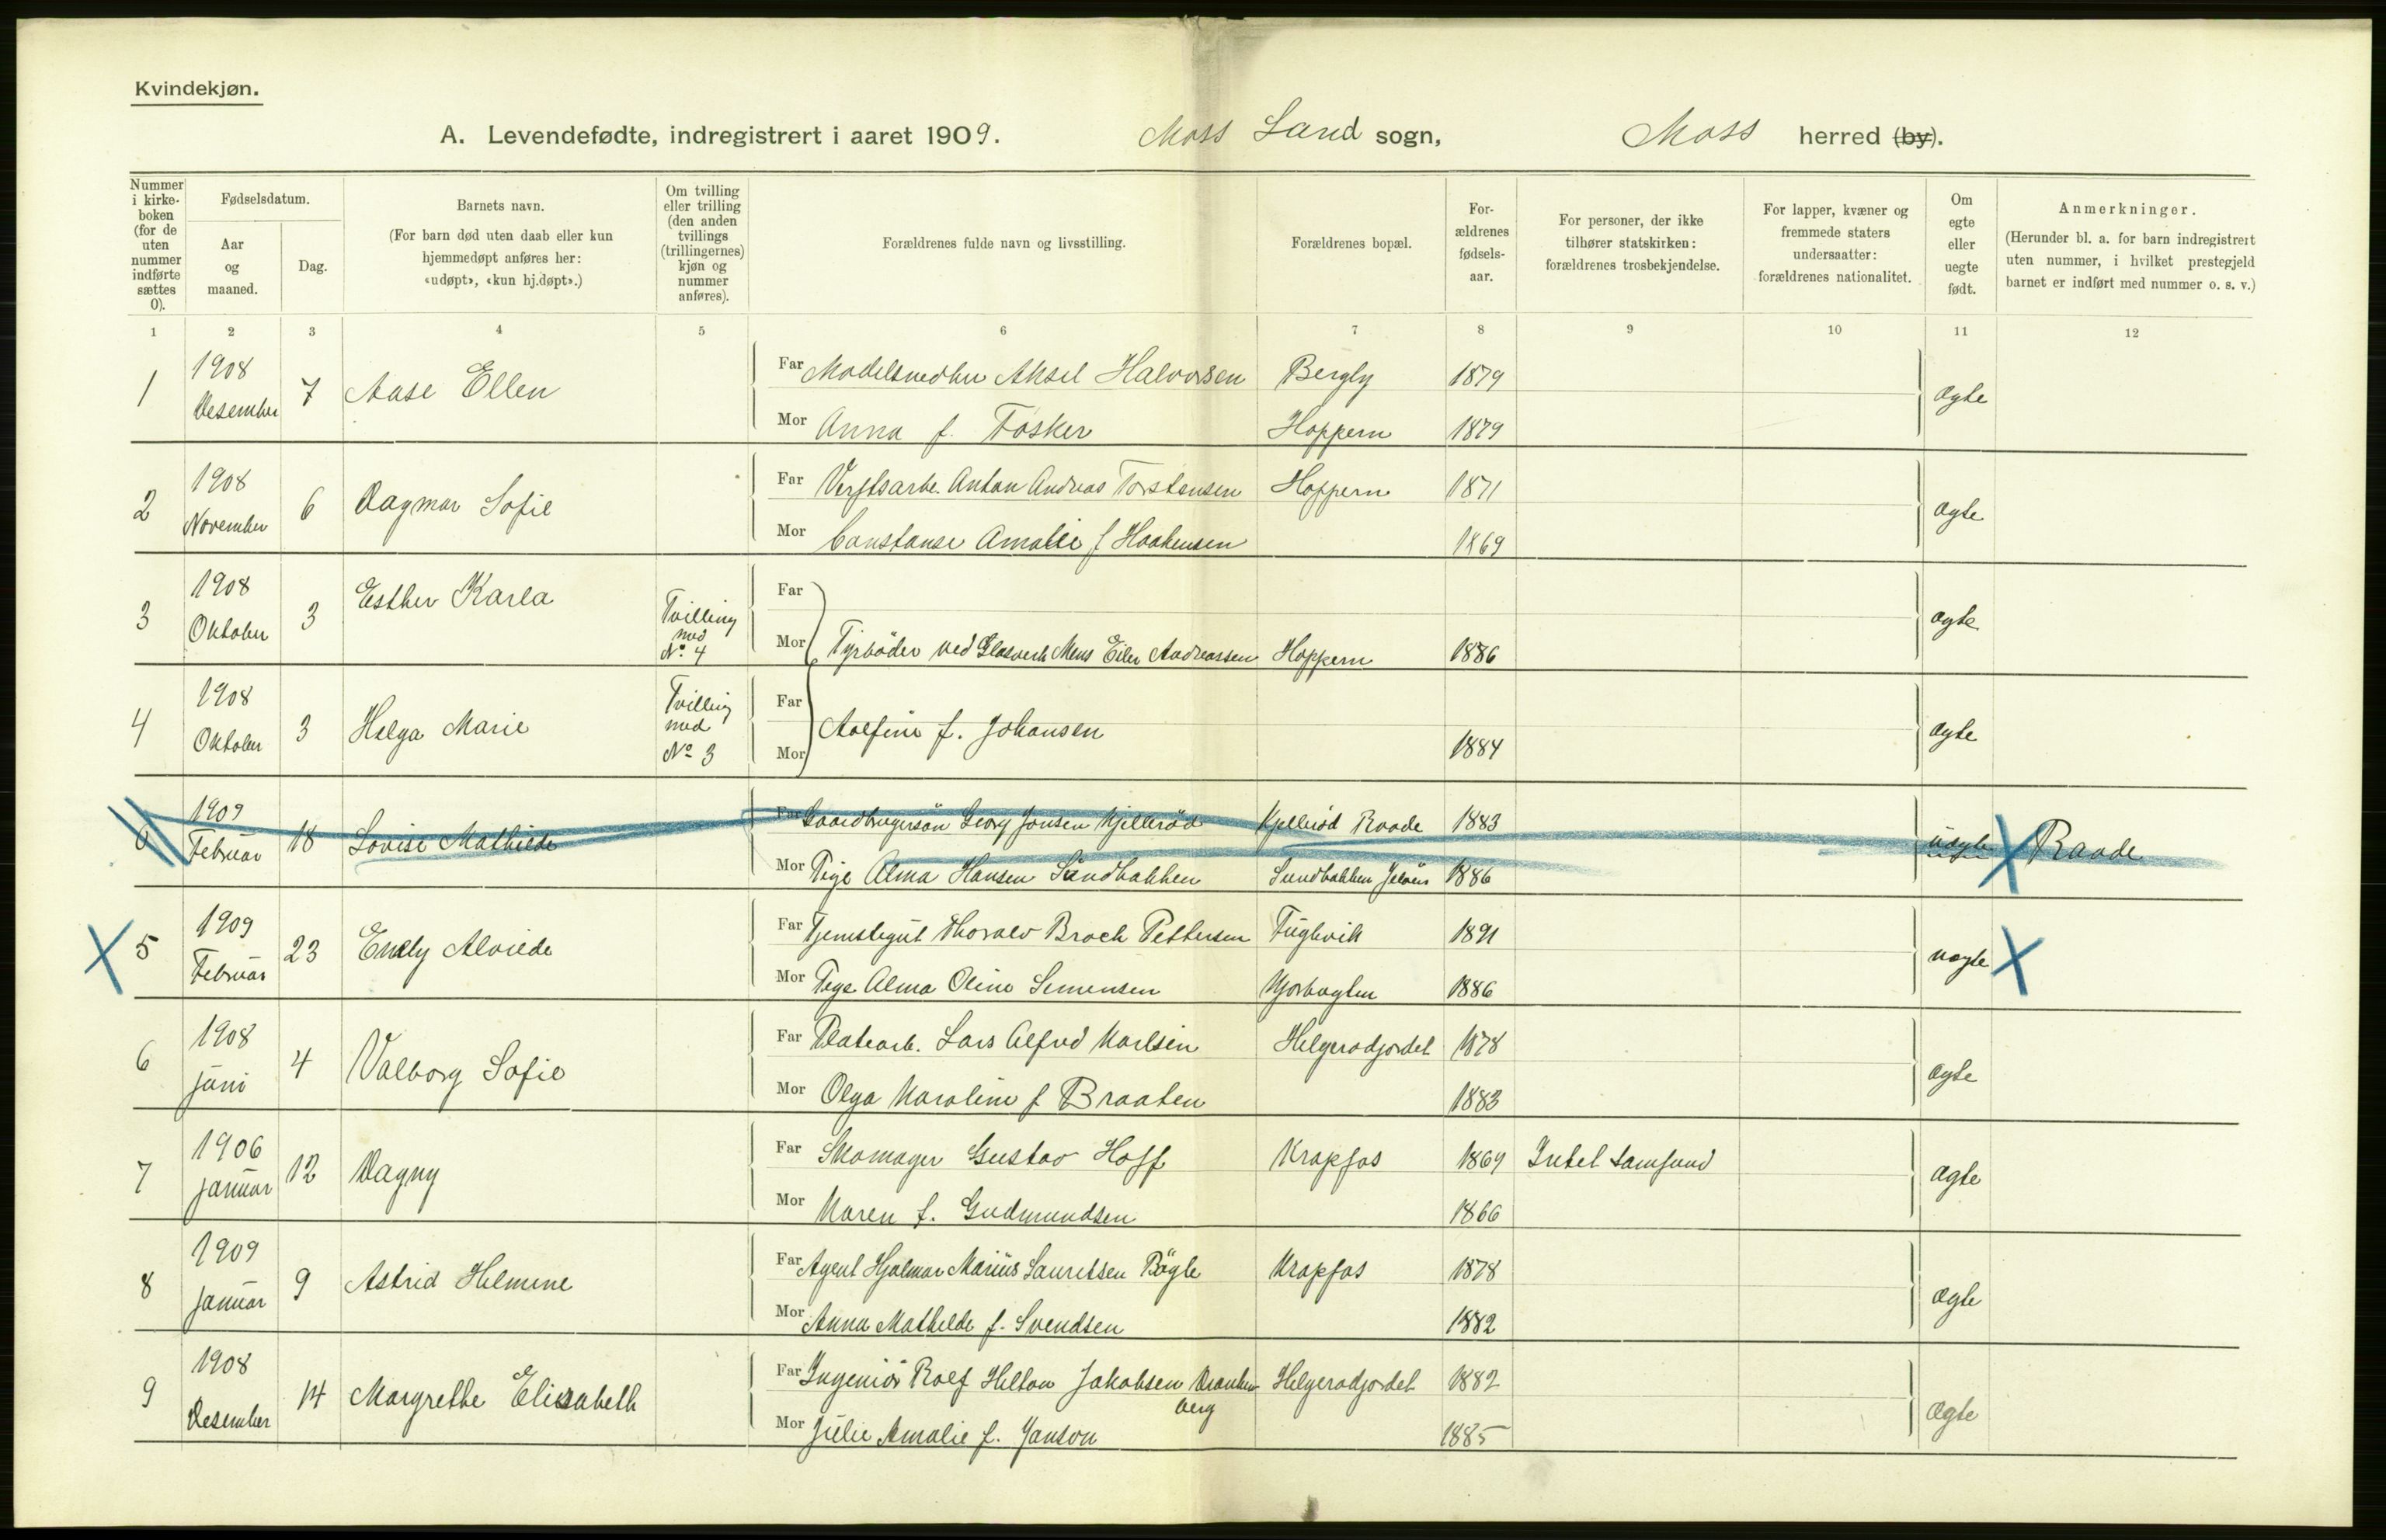 Kvindekjøn.
A. Levendefødte, indregistrert i aaret 1909. Moss Land sogn, Moss herred (by).
Nummer i kirkeboken (for de uten nummer indførte sættes 0).
Fødselsdatum.
Aar og maaned.
Dag.
Barnets navn.
(For barn død uten daab eller kun hjemmedøpt anføres her: «udøpt», «kun hj.døpt».)
Om tvilling eller trilling (den anden tvillings (trillingernes) kjøn og nummer anføres).
Forældrenes fulde navn og livsstilling.
Forældrenes bopæl.
Forældrenes fødselsaar.
For personer, der ikke tilhører statskirken: forældrenes trosbekjendelse.
For lapper, kvæner og fremmede staters undersaatter: forældrenes nationalitet.
Om egte eller uegte født.
Anmerkninger.
(Herunder bl. a. for barn indregistrert uten nummer, i hvilket prestegjeld barnet er indført med nummer o. s. v.)
1 2 3 4 5 6 7 8 9 10 11 12
1 1908 Desember 7 Aase Ellen
Far Modelsnedker Aksel Halvorsen Bergly 1879 ægte
Mor Anna f. Fosker Hoppern 1879
2 1908 November 6 Dagmar Sofie
Far Verftsarb. Anton Andreas Torstensen Hoppern 1871 ægte
Mor Constanse Amalie f Haakensen 1869
3 1908 Oktober 3 Esther Karla Tvilling med No 4
Far
Mor Fyrbøder ved Glasverk Mens Eiler Andreassen Hoppern 1886 ægte
4 1908 Oktober 3 Helga Marie Tvilling med No 3
Far
Aolfine f. Johansen
Mor 1884 ægte
0 1909 Februar 18 Lovise Mathilde
Far Gaardbrugersøn Georg Jonsen Kjellerød Kjellerød Raade 1883 uægte Raade
Mor Pige Alma Hansen Sandbakken Sundbakken Jeløen 1886
5 1909 Februar 23 Emely Alvilde
Far Tjenstegut Thoralv Brock Pettersen Fuglevik 1891 uægte
Mor Pige Alma Oline Simensen 1886
6 1908 juni 4 Valborg Sofie
Far Platearb. Lars Alfred Karlsen Helgerødjordet 1878 ægte
Mor Olga Karoline f Braaten 1883
7 1906 januar 12 Dagny
Far Skomager Gustav Hoff Krapfos 1869 Intet samfund ægte
Mor Karen f. Gudmundsen 1866
8 1909 januar 9 Astrid Helmine
Far Agent Hjalmar Marius Lauritsen Bøgle Krapfos 1878 ægte
Mor Anna Mathilde f. Svendsen 1882
9 1908 Desember 14 Margrethe Elisabeth
Far Ingeniør Rolf Hilton Jakobsen Krankenberg Helgerødjordet 1882 ægte
Mor Julie Amalie f. Janson 1885